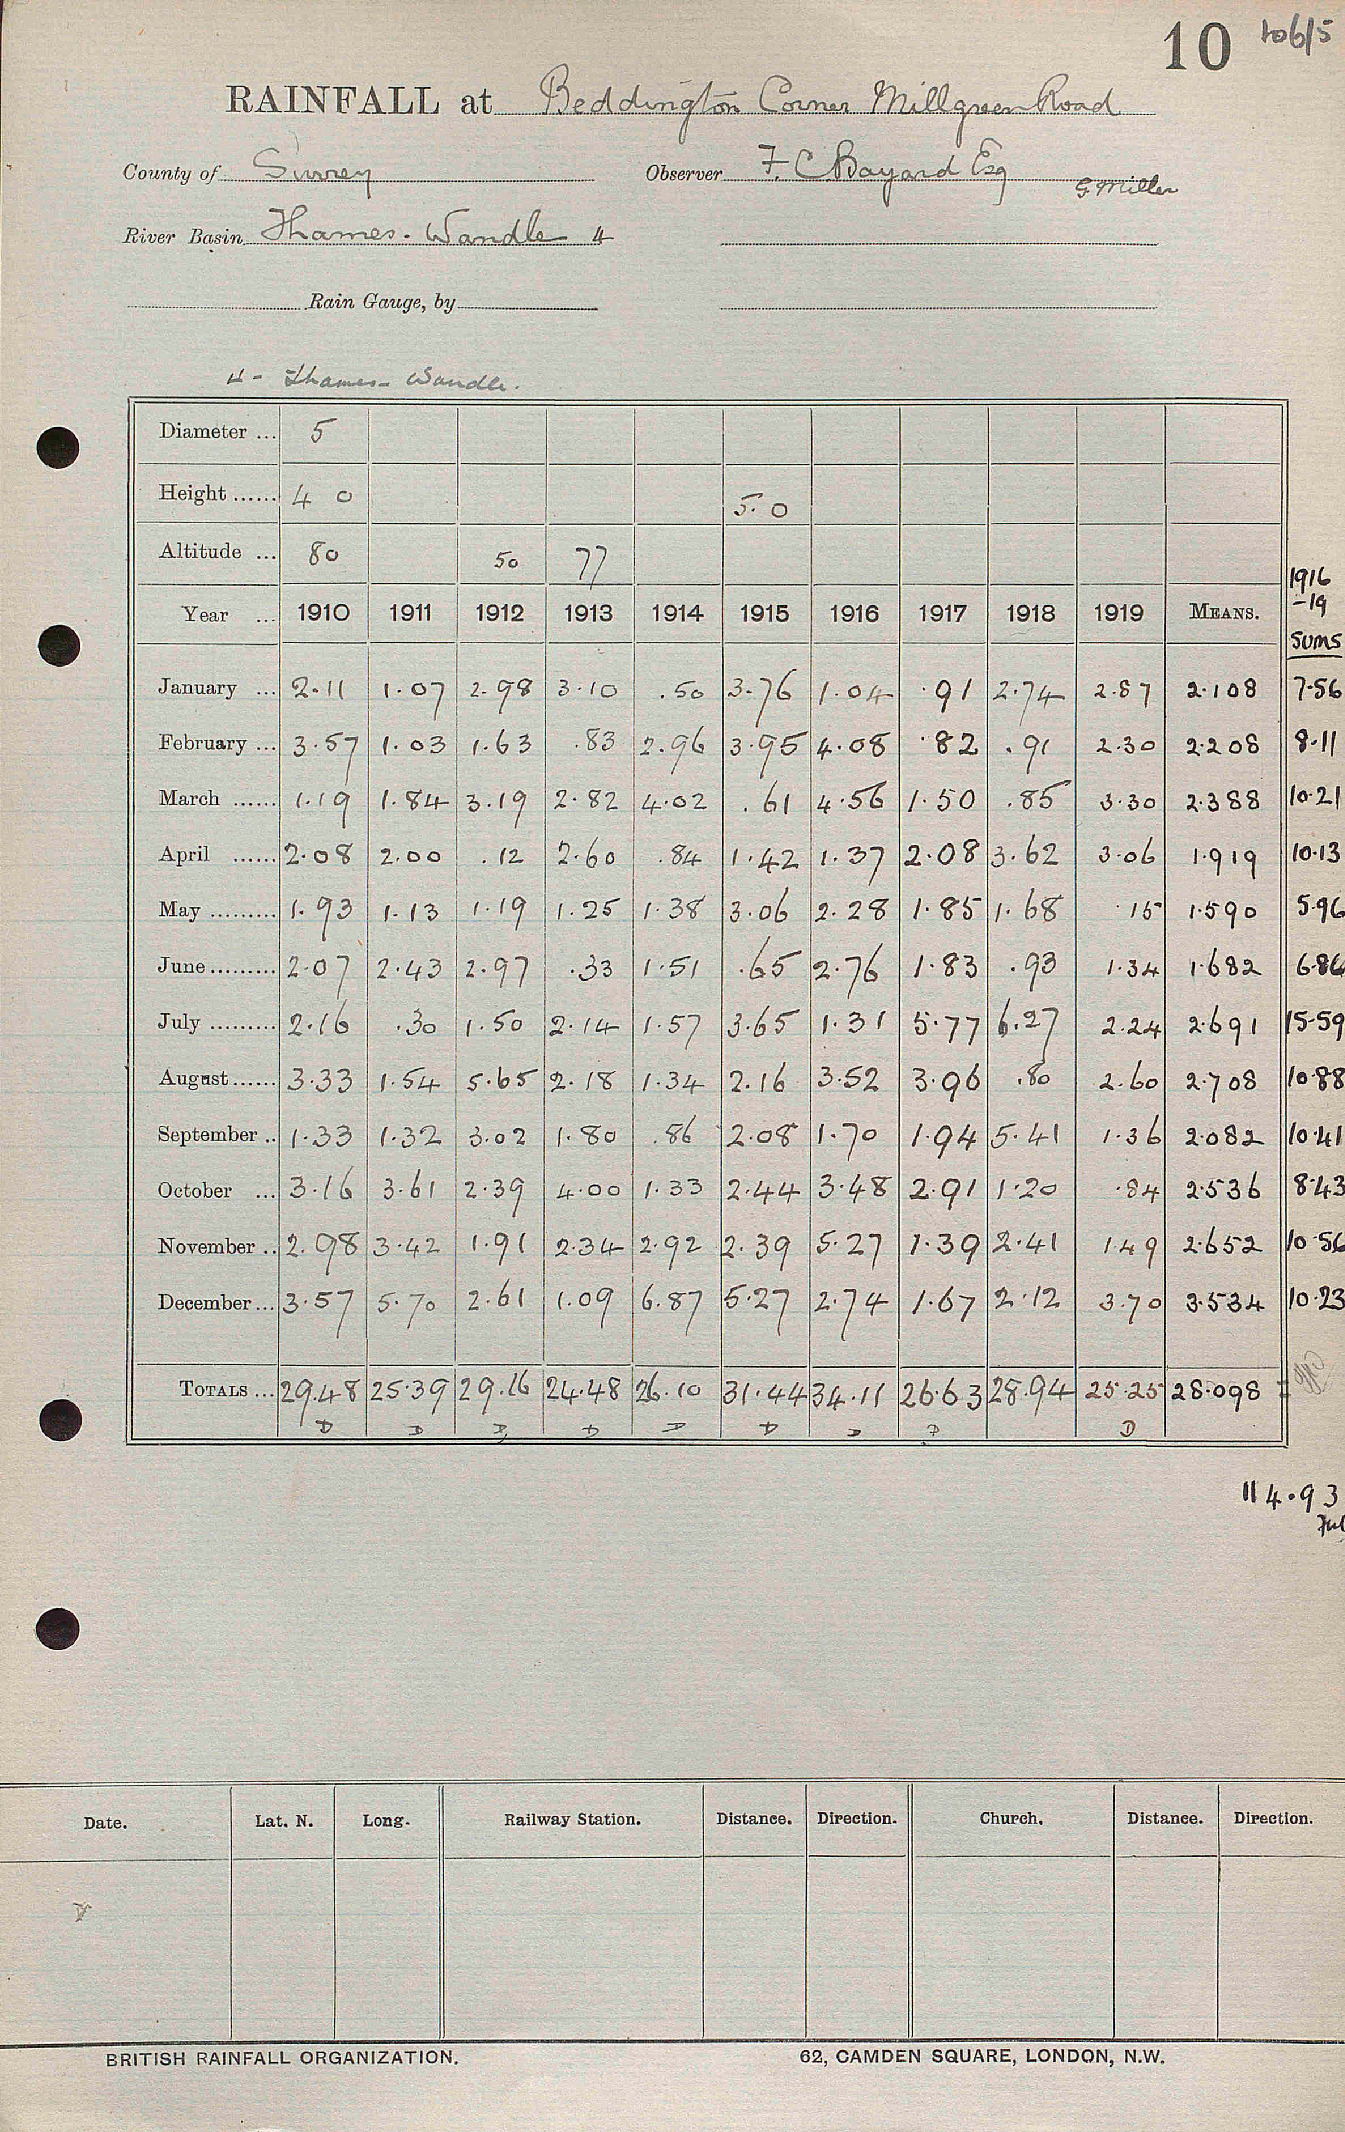 10 106/5
RAINFALL at Beddington Corner Millgreen Road
County of Surrey Observer F. C Bayard Esq
G Miller
River Basin Thames. Wandle 4
Rain Gauge, by
4 - Thames - Wandle.
Diameter ... 5
Height ...... 4 0 5. 0
Altitude ... 80 50 77
1916
-19
Sums
Year ... 1910 1911 1912 1913 1914 1915 1916 1917 1918 1919 MEANS.
January ... 2.11 1.07 2.98 3.10 .50 3.76 1.04 .91 2.74 2.87 2.108 7.56
February ... 3.57 1.03 1.63 .83 2.96 3.95 4.08 .82 .91 2.30 2.208 8.11
March ...... 1.19 1.84 3.19 2.82 4.02 .61 4.56 1.50 .85 3.30 2.388 10.21
April ...... 2.08 2.00 .12 2.60 .84 1.42 1.37 2.08 3.62 3.06 1.919 10.13
May ......... 1.93 1.13 1.19 1.25 1.38 3.06 2.28 1.85 1.68 .15 1.590 5.96
June ......... 2.07 2.43 2.97 .33 1.51 .65 2.76 1.83 .93 1.34 1.682 6.86
July ......... 2.16 .30 1.50 2.14 1.57 3.65 1.31 5.77 6.27 2.24 2.691 15.59
August ...... 3.33 1.54 5.65 2.18 1.34 2.16 3.52 3.96 .80 2.60 2.708 10.88
September .. 1.33 1.32 3.02 1.80 .86 2.08 1.70 1.94 5.41 1.36 2.082 10.41
October ... 3.16 3.61 2.39 4.00 1.33 2.44 3.48 2.91 1.20 .84 2.536 8.43
November .. 2.98 3.42 1.91 2.34 2.92 2.39 5.27 1.39 2.41 1.49 2.652 10.56
December ... 3.57 5.70 2.61 1.09 6.87 5.27 2.74 1.67 2.12 3.70 3.534 10.23
TOTALS ... 29.48 25.39 29.16 24.48 26.10 31.44 34.11 26.63 28.94 25.25 28.098
D D D D D D D D D
114.93
Date. Lat. N. Long. Railway Station. Distance. Direction. Church. Distance. Direction.
BRITISH RAINFALL ORGANIZATION. 62, CAMDEN SQUARE, LONDON, N.W.